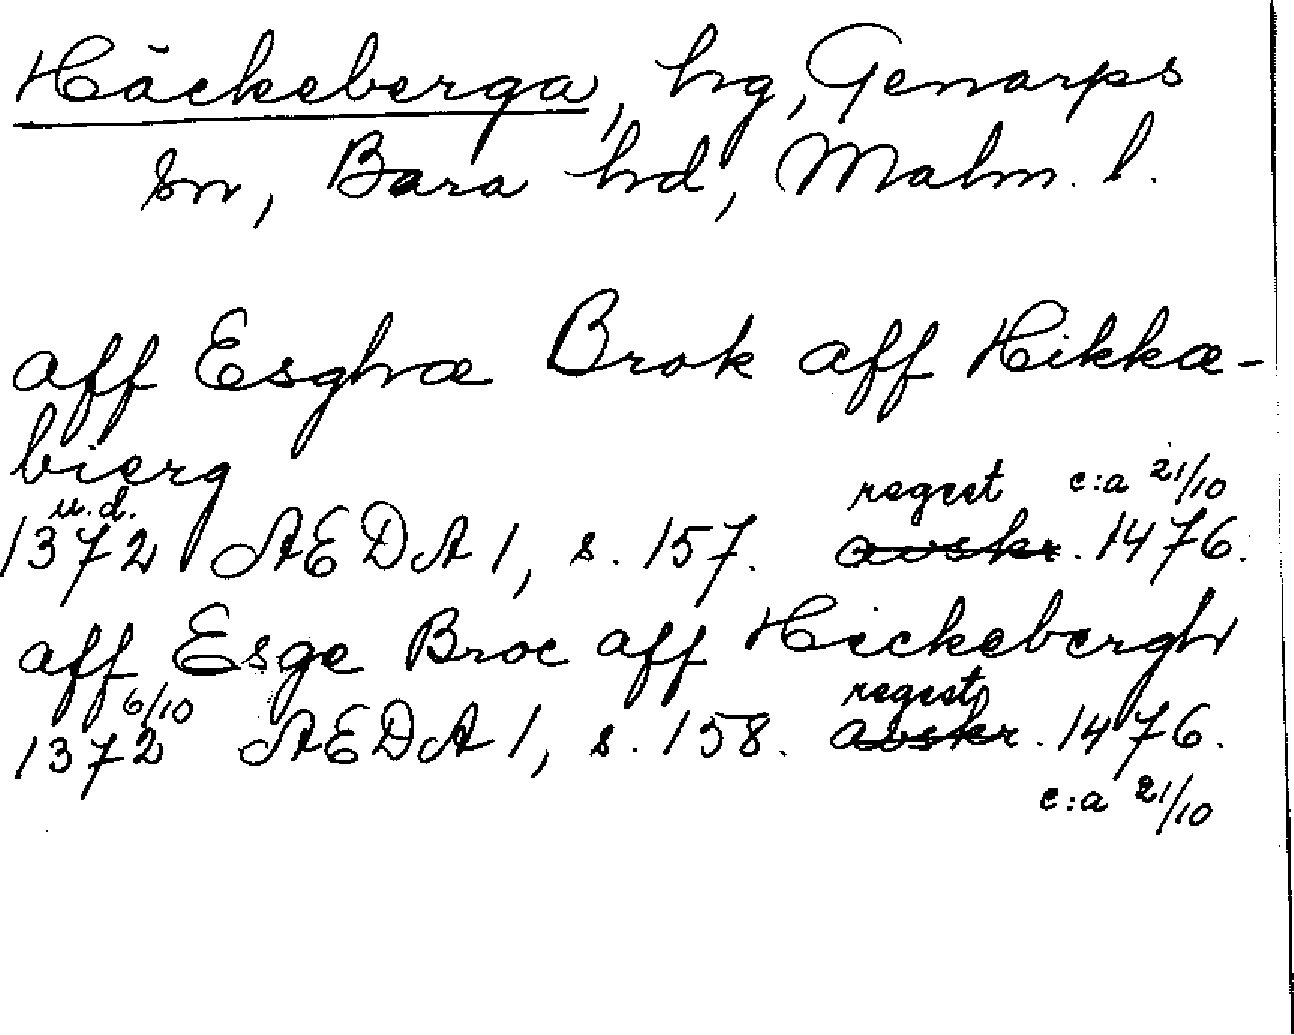 Häckeberga, hg, Genarps
sn, Bara hd, Malm. l.
aff Esghæ Brok aff Hikkæ-
bierg
u.d. regest c:a 21/10
1372 AEDA 1, s. 157. avskr. 1476.
aff Esge Broc aff Hickebergh
6/10 regest
1372 AEDA 1, s. 158. avskr. 1476.
c:a 21/10